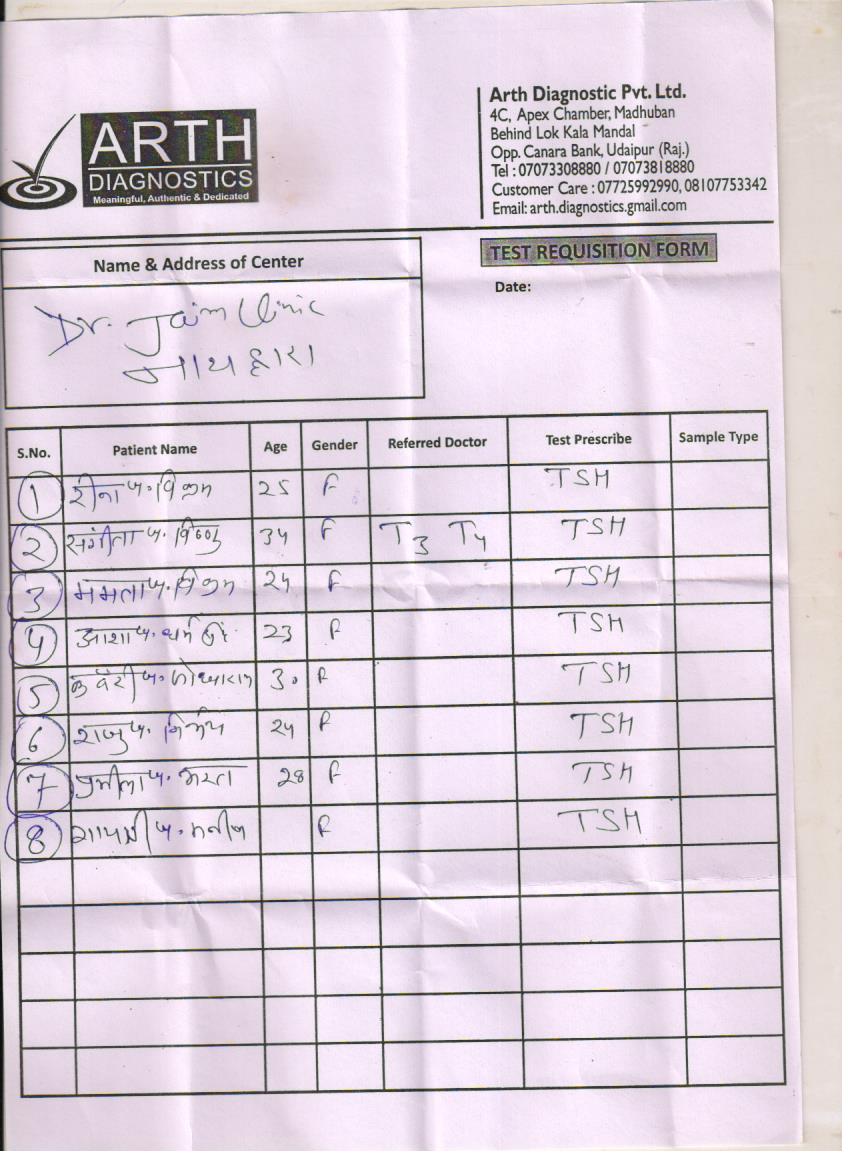 ARTH
DIAGNOSTICS
Meaningful, Authentic & Dedicated
Arth Diagnostic Pvt. Ltd.
4C, Apex Chamber, Madhuban
Behind Lok Kala Mandal
Opp. Canara Bank, Udaipur (Raj.)
Tel : 07073308880 / 07073818880
Customer Care : 07725992990, 08107753342
Email: arth.diagnostics.gmail.com
Name & Address of Center
TEST REQUISITION FORM
Date:
Dr. Jain Clinic
नाथद्वारा
S.No. Patient Name Age Gender Referred Doctor Test Prescribe Sample Type
1 रीना 25 F TSH
2 संगीता 34 F T3 T4 TSH
3 ममता 24 F TSH
4 आशा 23 F TSH
5 30 F TSH
6 24 F TSH
7 28 F TSH
8 F TSH